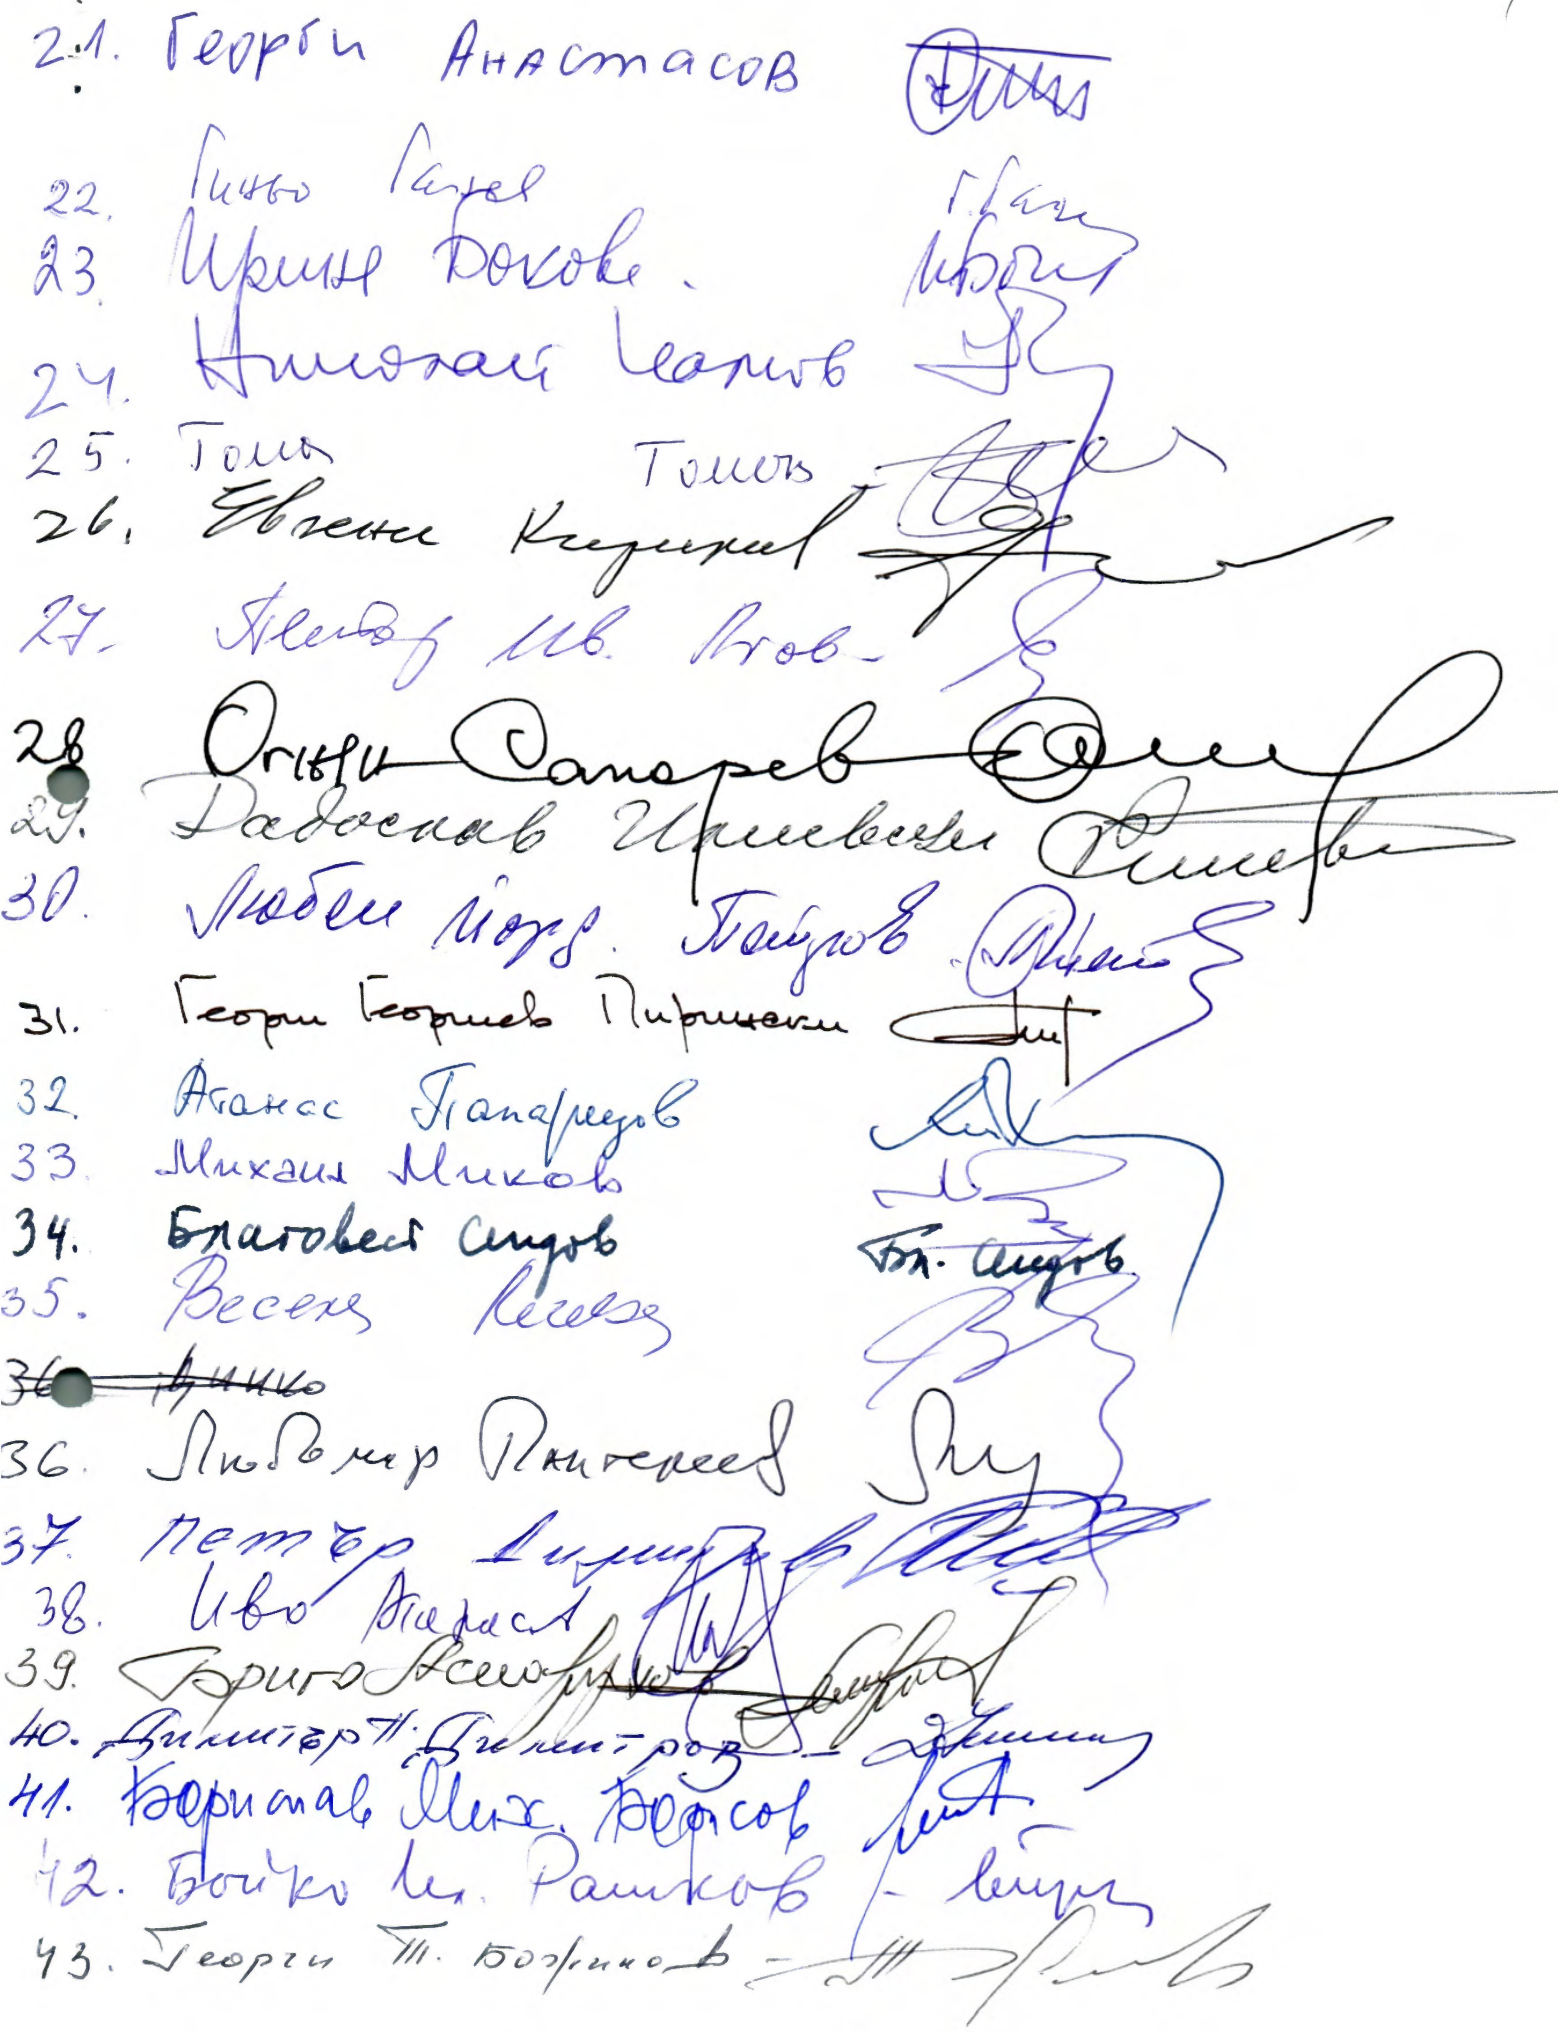 21. Георги Анастасов
22. Гиньо Ганев Г. Ган
23 Ирина Бокова.
24. Николай Камов
25. Тома Томов
26. Евгени Кирилов
27. Петър Ив. Агов
28 Огнян Сапарев
29. Радослав Илиевски
30. Любен Йорд. Петров
31. Георги Георгиев Пирински
32. Атанас Папаризов
33. Михаил Миков
34. Благовест Сендов Бл. Сендов
35. Весела Лечева
36 Динко
36. Любомир Пантелеев
37. Петър Димитров
38. Иво Атанасов
39. Бриго Аспарухов
40. Димитър П. Димитров
41. Борислав Мих. Борисов
42. Бойко Ил. Рашков
43. Георги Т. Божинов